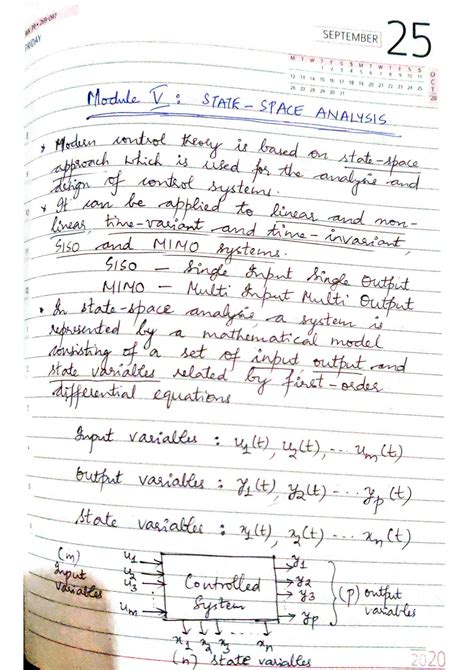 WK 39 • 269-097
FRIDAY
SEPTEMBER 25
M T W T F S S M T W T F S S
OCT 20
12 13 14 15 16 17 18 19 20 21 22 23 24 25
26 27 28 29 30 31
Module V : STATE-SPACE ANALYSIS
* Modern control theory is based on state-space
approach which is used for the analysis and
design of control systems.
* It can be applied to linear and non-
linear, time-variant and time-invariant,
SISO and MIMO systems.
SISO — Single Input Single Output
MIMO — Multi Input Multi Output
* In state-space analysis, a system is
represented by a mathematical model
consisting of a set of input output and
state variables related by first-order
differential equations
Input variables : u1(t), u2(t), ... um(t)
Output variables : y1(t), y2(t) ... yp(t)
State variables : x1(t), x2(t) ... xn(t)
(m) Input variables
u1
u2
u3
um
Controlled System
y1
y2
y3
yp
(p) output variables
x1 x2 x3 ... xn
(n) state variables
2020